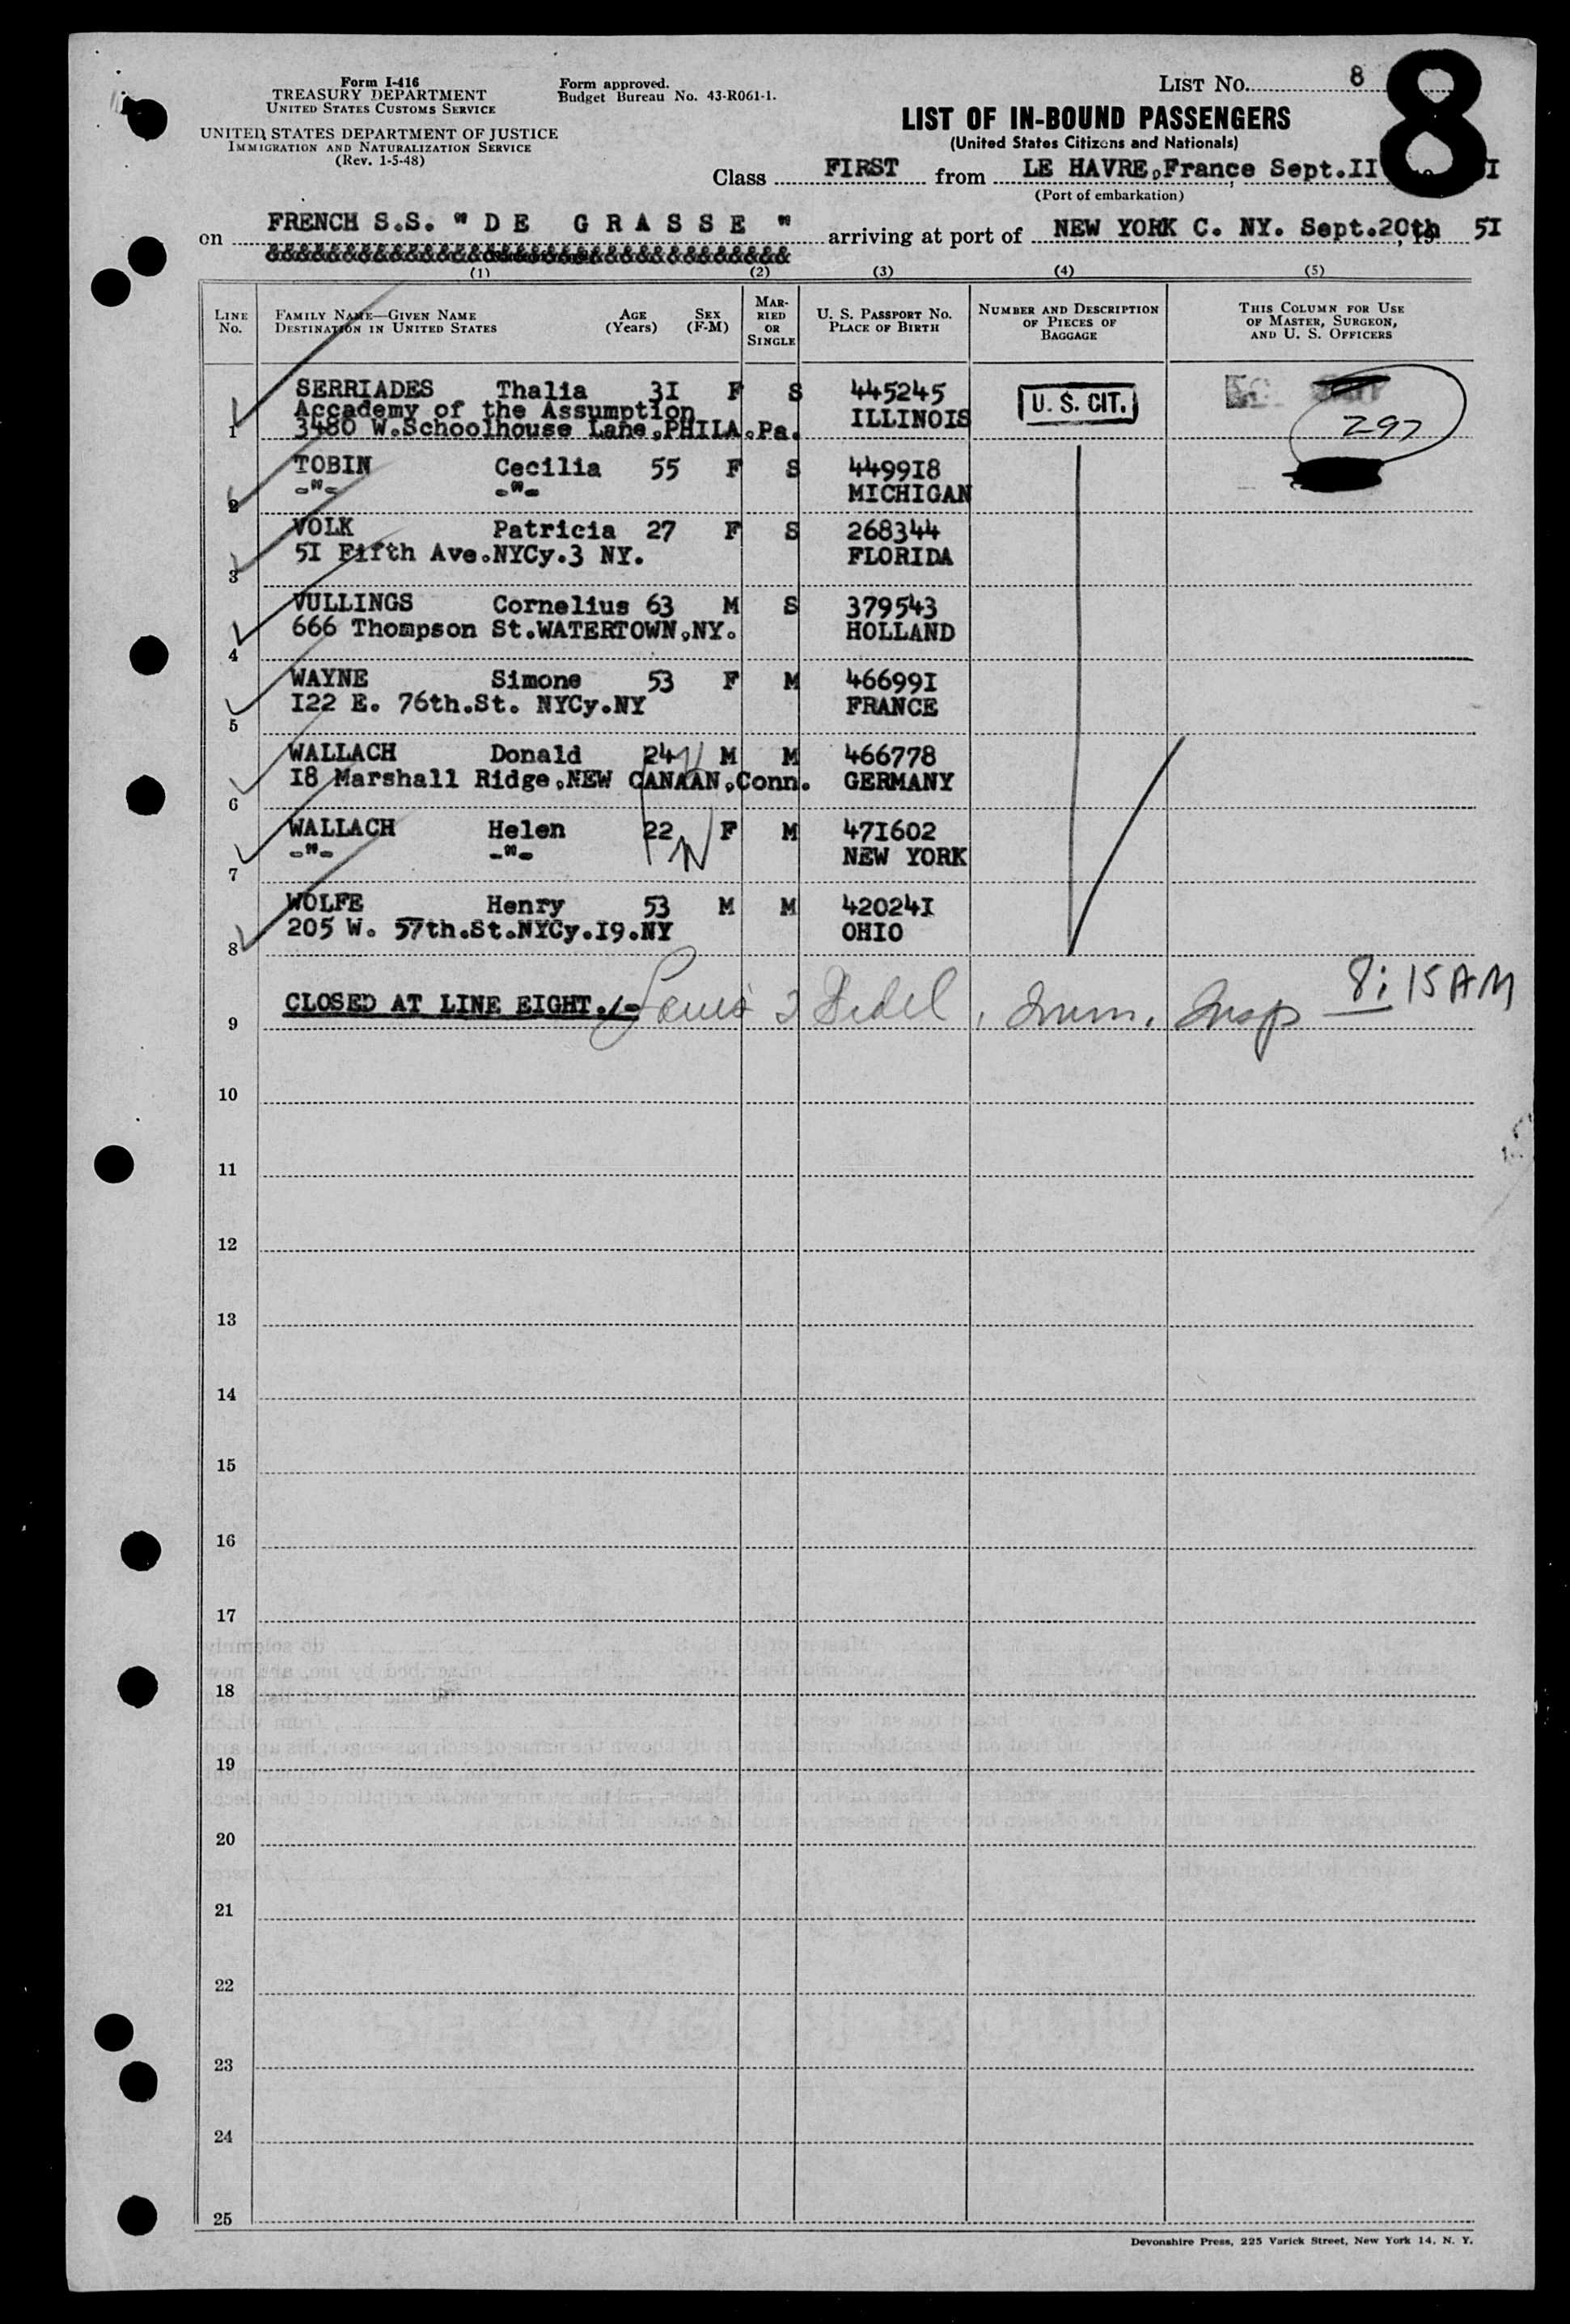 Form I-416
TREASURY DEPARTMENT
UNITED STATES CUSTOMS SERVICE
UNITED STATES DEPARTMENT OF JUSTICE
IMMIGRATION AND NATURALIZATION SERVICE
(Rev. 1-5-48)
Form approved.
Budget Bureau No. 43-R061-1.
LIST NO. 8
8
LIST OF IN-BOUND PASSENGERS
(United States Citizens and Nationals)
Class FIRST from LE HAVRE,France Sept.II I
(Port of embarkation)
on FRENCH S.S. " D E G R A S S E " arriving at port of NEW YORK C. NY. Sept.20th 5I
&&&&&&&&&&&&&&&&&&&&&&&&&&&&&&&&&&
(1) (2) (3) (4) (5)
LINE No. FAMILY NAME—GIVEN NAME DESTINATION IN UNITED STATES AGE (Years) SEX (F-M) MARRIED OR SINGLE U. S. PASSPORT NO. PLACE OF BIRTH NUMBER AND DESCRIPTION OF PIECES OF BAGGAGE THIS COLUMN FOR USE OF MASTER, SURGEON, AND U. S. OFFICERS
SERRIADES Thalia 3I F S 445245 U. S. CIT.
Accademy of the Assumption ILLINOIS
1 3480 W.Schoolhouse Lane,PHILA.Pa. 297
TOBIN Cecilia 55 F S 4499I8
2 -"- -"- MICHIGAN
VOLK Patricia 27 F S 268344
3 5I Fifth Ave.NYCy.3 NY. FLORIDA
VULLINGS Cornelius 63 M S 379543
4 666 Thompson St.WATERTOWN,NY. HOLLAND
WAYNE Simone 53 F M 46699I
5 I22 E. 76th.St. NYCy.NY FRANCE
WALLACH Donald 24 M M 466778
6 I8 Marshall Ridge,NEW CANAAN,Conn. GERMANY
WALLACH Helen 22 F M 47I602
7 -"- -"- NEW YORK
WOLFE Henry 53 M M 42024I
8 205 W. 57th.St.NYCy.I9.NY OHIO
9 CLOSED AT LINE EIGHT./- Louis , Imm. Insp 8:15 AM
10
11
12
13
14
15
16
17
18
19
20
21
22
23
24
25
Devonshire Press, 225 Varick Street, New York 14, N. Y.